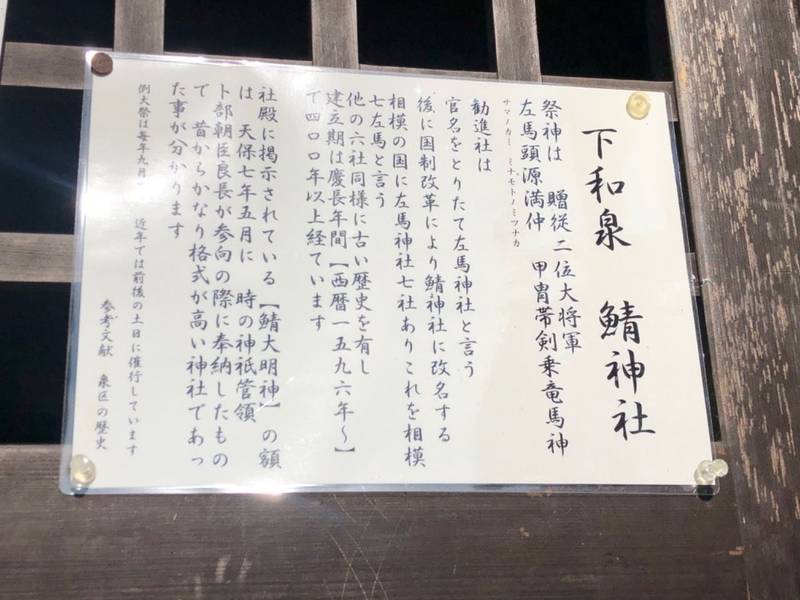 下和泉　鯖神社
祭神は　贈従二位大将軍
左馬頭源満仲　甲冑帯剣乗竜馬神
サマノカミ　ミナモトノミツナカ
勧進社は
官名をとりたて左馬神社と言う
後に国制改革により鯖神社に改名する
相模の国に左馬神社七社ありこれを相模
七左馬と言う
他の六社同様に古い歴史を有し
建立期は慶長年間【西暦一五九六年～】
で四〇〇年以上経ています
社殿に掲示されている【鯖大明神】の額
は　天保七年五月に　時の神祇管領
卜部朝臣良長が参向の際に奉納したもの
で　昔からかなり格式が高い神社であっ
た事が分かります
例大祭は毎年九月　近年では前後の土日に催行しています
参考文献　泉区の歴史